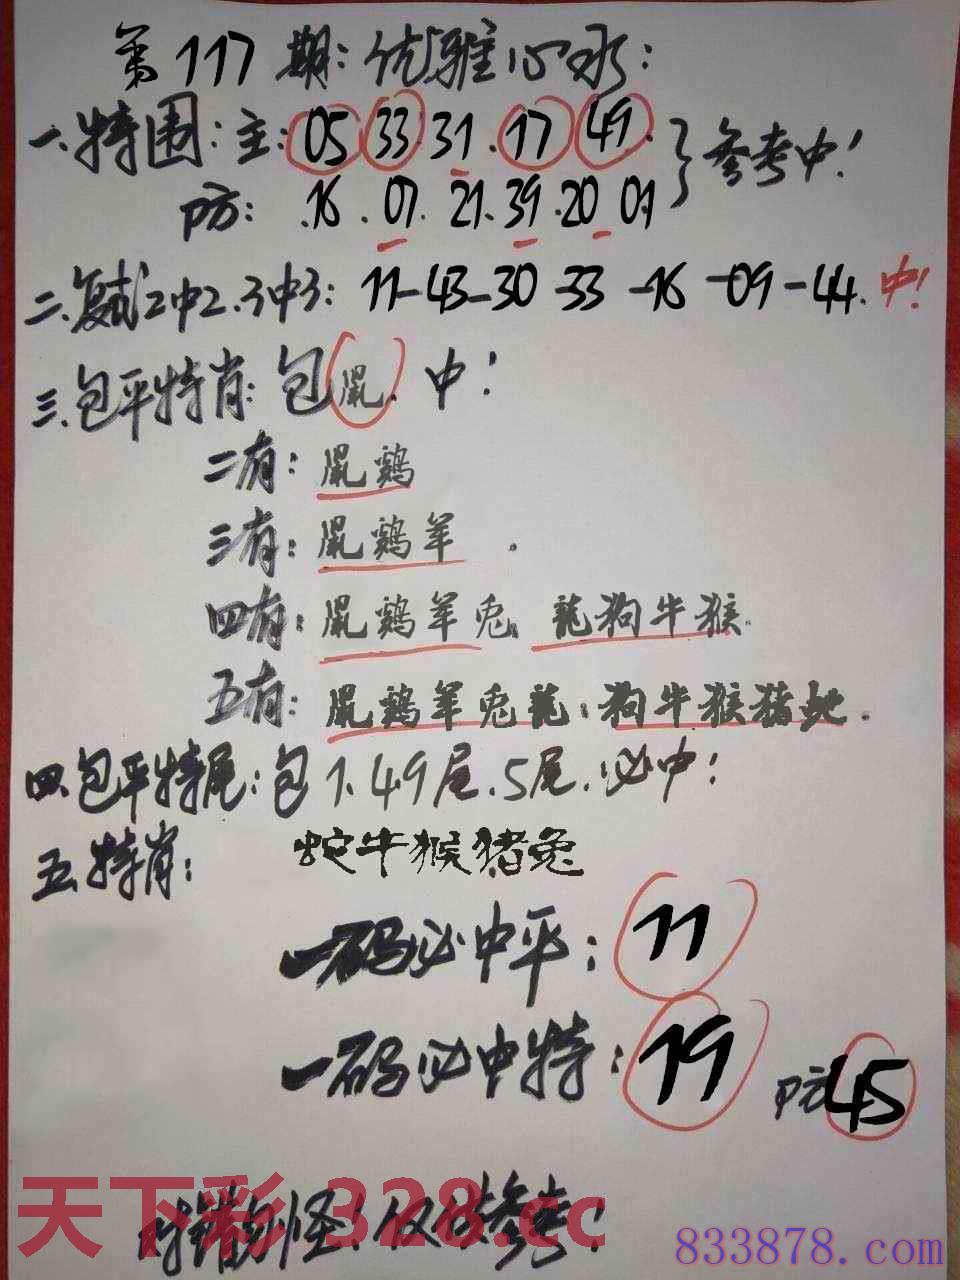 第117期:优雅心水:
一.特围:主:05 33 31.17 49. 参考中!
防: .16.07.21.39.20 01
二.复试2中2.3中3: 11-43-30-33-16-09-44.中!
三.包平特肖:包鼠.中!
二有:鼠鷄
三有:鼠鷄羊.
四有:鼠鷄羊兎.龍狗牛猴.
五有:鼠鷄羊兎龍:狗牛猴猪虵.
四.包平特尾:包1.49尾.5尾.必中!
五.特肖: 蛇牛猴猪兔
一码必中平:11
一码必中特:19 防45
对错勿怪!仅供参考!
天下彩 328.cc
833878.com